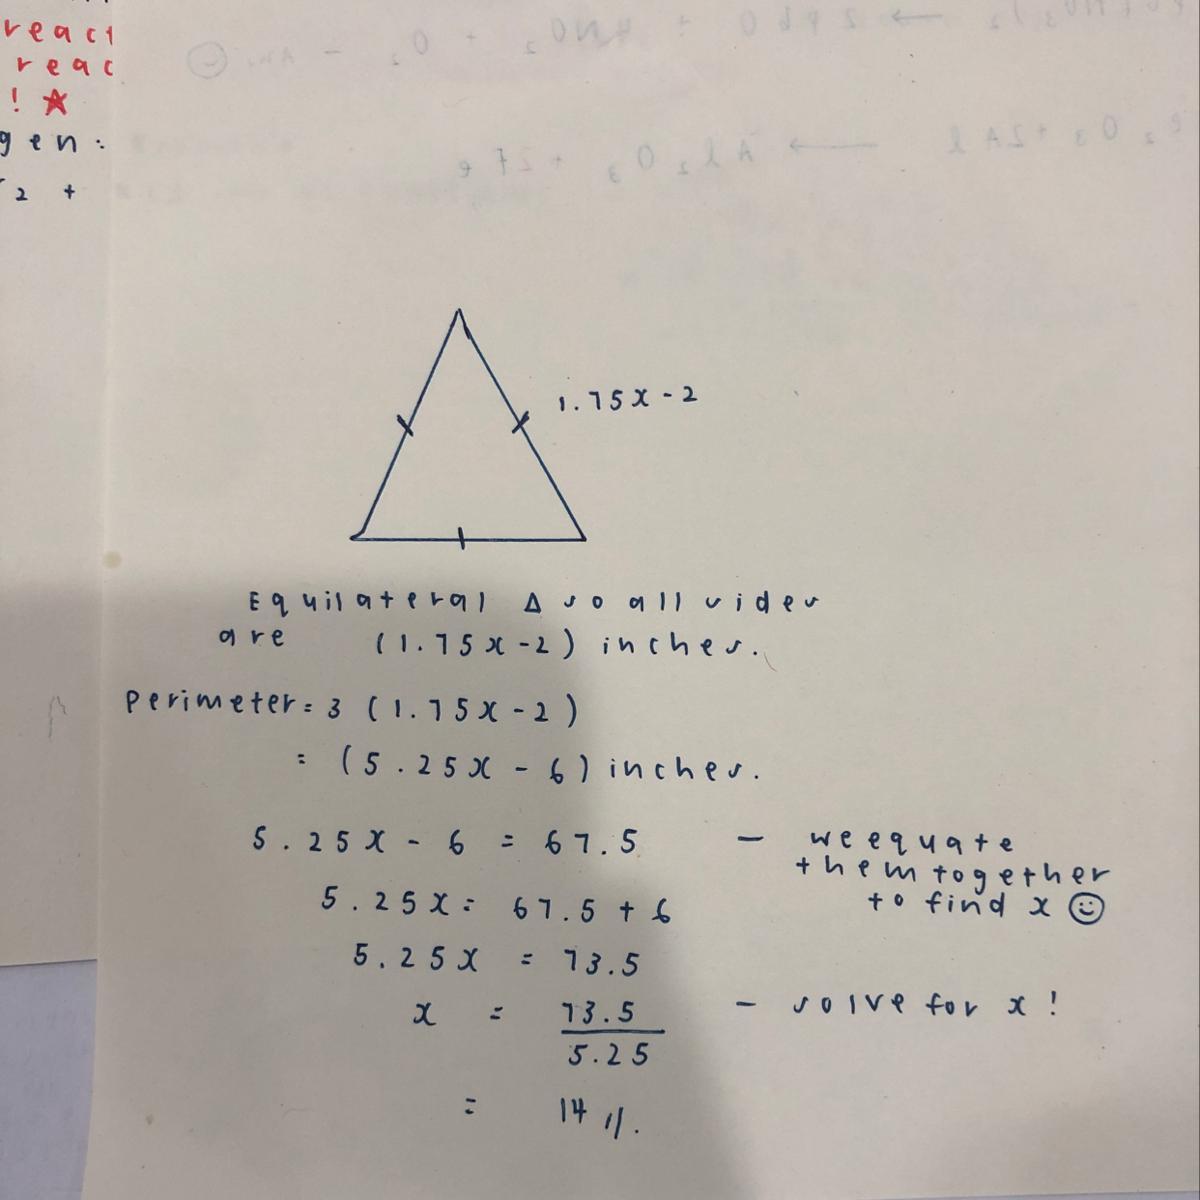 react
reac
! ☆
gen:
2 +
1.75x - 2
Equilateral Δ so all sides
are (1.75x - 2) inches.
Perimeter = 3 (1.75x - 2)
= (5.25x - 6) inches.
5.25x - 6 = 67.5 - we equate
them together
to find x ☺
5.25x = 67.5 + 6
5.25x = 73.5
x = 73.5 - solve for x!
5.25
= 14 //.